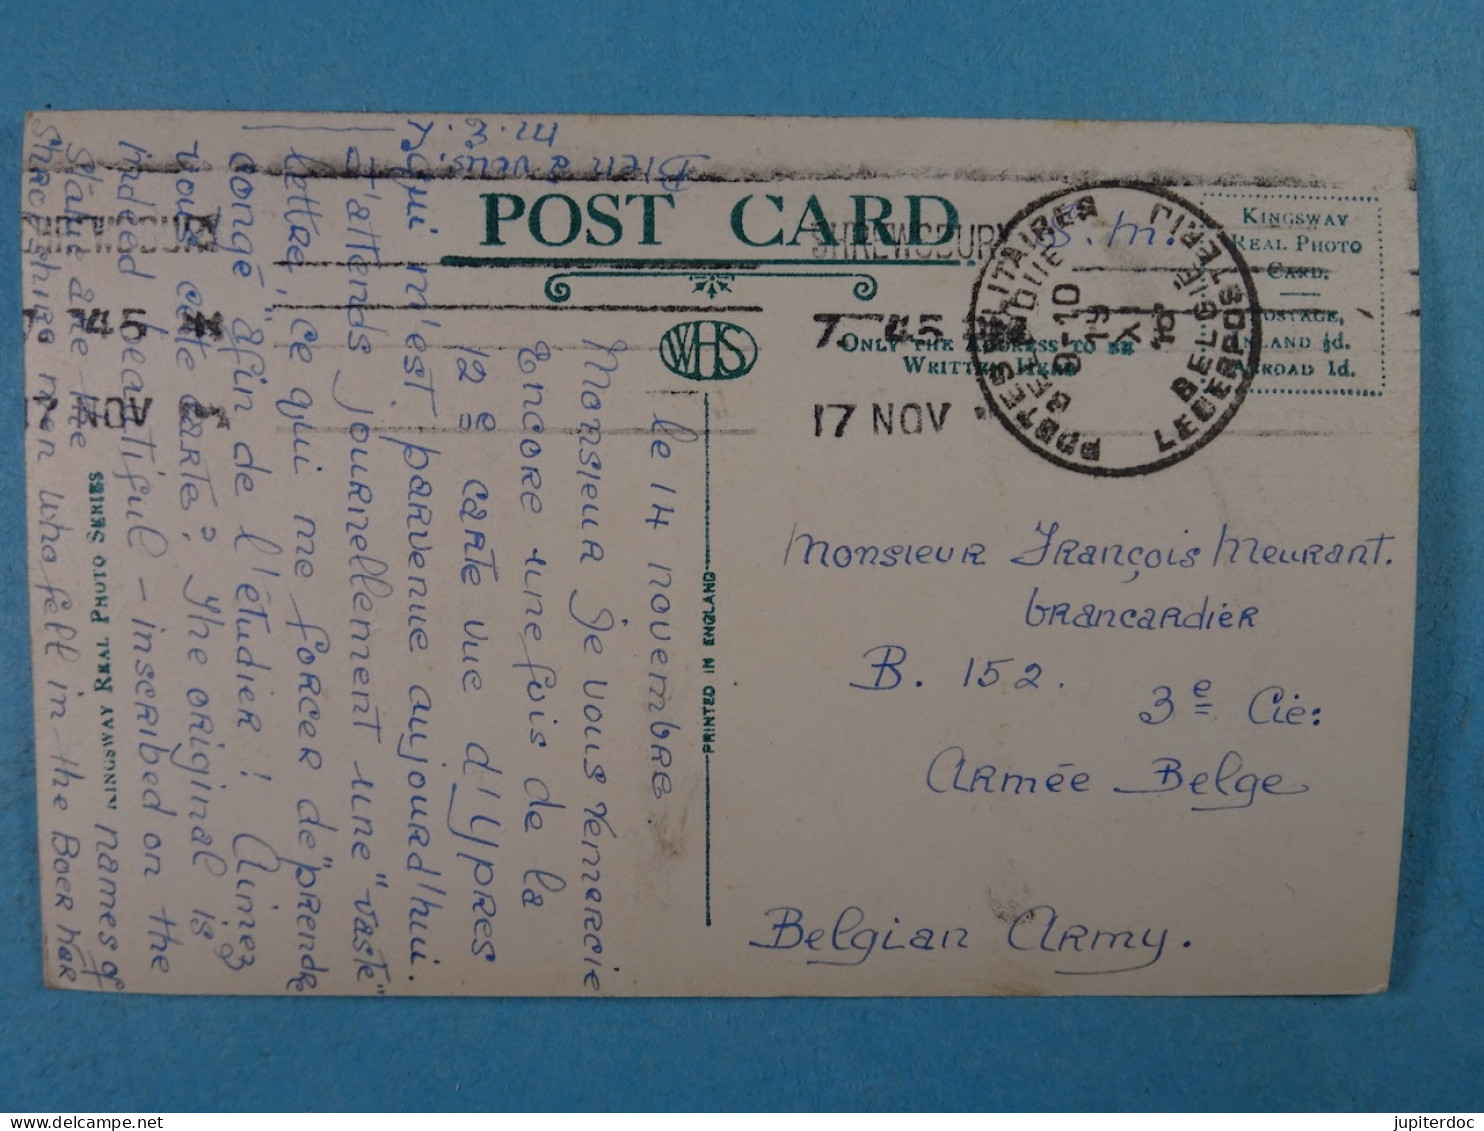 POST CARD
KINGSWAY
REAL PHOTO
CARD.
POSTAGE,
INLAND ½d.
ABROAD 1d.
ONLY THE ADDRESS TO BE
WRITTEN HERE
WHS
PRINTED IN ENGLAND
KINGSWAY REAL PHOTO SERIES
SHREWSBURY
7. 45
17 NOV
SHREWSBURY
7 45
17 NOV
POSTES MILITAIRES
BELGIQUE
9-10
19
XI
BELGIE
LEGERPOSTERIJ
S.M.
Monsieur François Meurant.
brancardier
B. 152.
3e Cie:
Armée Belge
Belgian Army.
le 14 novembre.
Monsieur je vous remercie
encore une fois de la
12e carte vue d'Ypres
qui m'est parvenue aujourd'hui.
J'attends journellement une "vaste"
lettre, ce qui me forcer de "prendre
congé" afin de l'étudier! Aimez
vous cette carte? The original is
indeed beautiful - inscribed on the
Statue are the names of
Shropshire men who fell in the Boer War
Bien à vous.